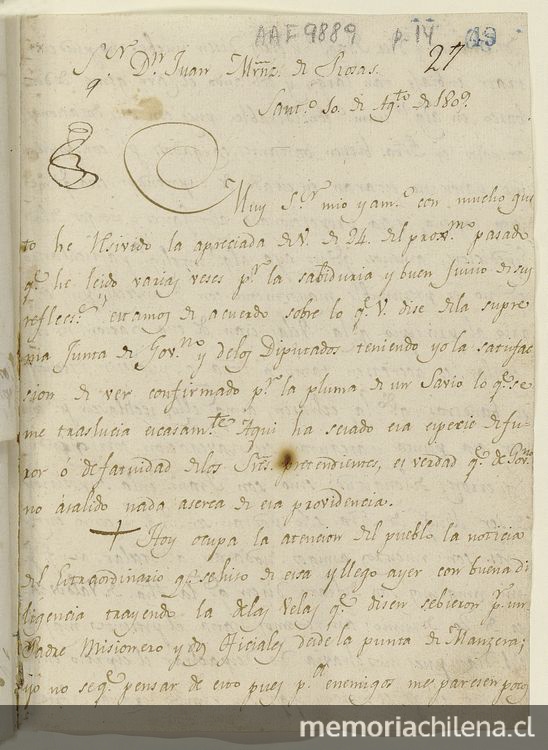 AAF9889 p. 14 49
Sor Dn Juan Mrñz. de Rosas. 27
9.
Santo. 10. de Agto de 1809.
Muy Sor mio y am.º con mucho gus
to he resivido la apreciada de V. de 24. del proxmo. pasado
q.e he leido varias veses pr. la sabiduria y buen juisio de sus
reflecs.s estamos de acuerdo sobre lo q.e V. dise dela supre
ma Junta de Govno. y delos Diputados teniendo yo la satisfac
sion de ver confirmado pr. la pluma de un Savio lo q.e se
me traslucia escasamte. Aqui ha sesado esa especie de fu-
ror ó de fatuidad delos Sres. pretendientes, es verdad q.e de Govno
no á salido nada aserca de esa providencia.
Hoy ocupa la atencion del pueblo la noticia
del Extraordinario q.e se hiso de essa y llego ayer con buena di
ligencia trayendo la delas Velas q.e disen se bieron pr. un
Padre Misionero y dos Oficiales desde la punta de Manzera;
yo no se q.e pensar de esto pues pa. enemigos me paresen pocos
memoriachilena.cl